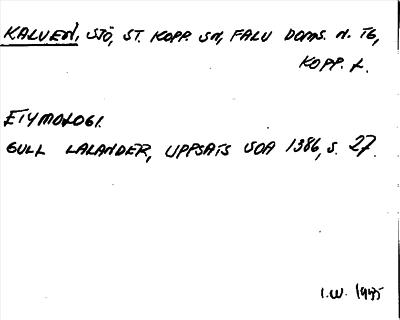 KALVEN, SJÖ, ST. KOPP. SN, FALU DOMS. N. TG,
KOPP. L.
ETYMOLOGI.
GULL LALANDER, UPPSATS SOA 1386, S. 27.
I.W. 1975